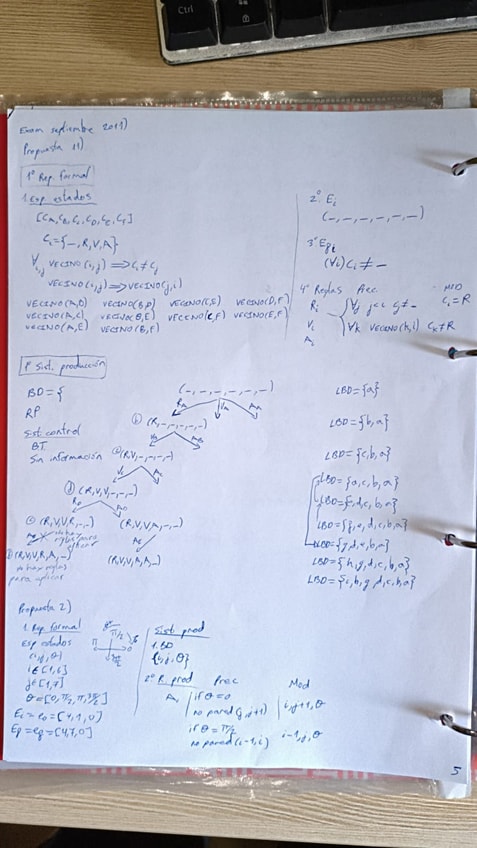 Ctrl
Exam septiembre 2011)
Propuesta 1)
1º Rep formal
1. Esp. estados
[C_A, C_B, C_C, C_D, C_E, C_F]
C_i = {-, R, V, A}
∀i,j VECINO(i,j) ⟹ C_i ≠ C_j
VECINO(i,j) ⟹ VECINO(j,i)
VECINO(A,D) VECINO(B,D) VECINO(C,E) VECINO(D,F)
VECINO(A,C) VECINO(B,E) VECINO(C,F) VECINO(E,F)
VECINO(A,E) VECINO(B,F)
2º E_i
(-,-,-,-,-,-)
(∀i) C_i ≠ -
4º Reglas Prec. MOD
R_i C_i = R
V_i ∀k VECINO(k,i) C_k ≠ R
A_i
Sist. producción
BD = {
RP
Sist control
BT
Sin información
(-,-,-,-,-,-)
R_A V_A A_A
(b) (R,-,-,-,-,-)
(R,V,-,-,-,-)
(d) (R,V,V,-,-,-)
(R,V,V,R,-,-) (R,V,V,A,-,-)
no hay reglas para aplicar
(R,V,V,R,A,-) (R,V,V,A,A,-)
no hay reglas
para aplicar
LBD = {a}
LBD = {b,a}
LBD = {c,b,a}
LBD = {d,c,b,a}
LBD = {e,d,c,b,a}
LBD = {f,e,d,c,b,a}
LBD = {g,d,c,b,a}
LBD = {h,g,d,c,b,a}
LBD = {i,h,g,d,c,b,a}
Propuesta 2)
1. Rep formal
Esp estados
(i,j,θ)
i ∈ [1,6]
j ∈ [1,7]
θ = [0, π/2, π, 3π/2]
E_i = e_0 = [4,1,0]
E_f = e_g = [4,7,0]
π π/2 0 3π/2
Sist prod
1. BD
{i,j,θ}
2º R. prod Prec Mod
A_i if θ = 0
no pared (i,j+1) i,j+1,θ
if θ = π/2
no pared (i-1,j) i-1,j,θ
5